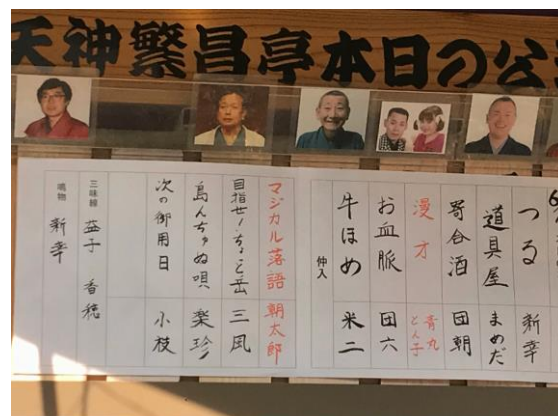 天神繁昌亭本日の公
つる 新幸
道具屋 まめだ
寄合酒 団朝
漫才 青丸 とん子
お血脈 団六
牛ほめ 米二
仲入
マジカル落語 朝太郎
目指せ!ちょこ岳 三風
島んちゅぬ唄 楽珍
次の御用日 小枝
三味線 益子 香穂
鳴物 新幸